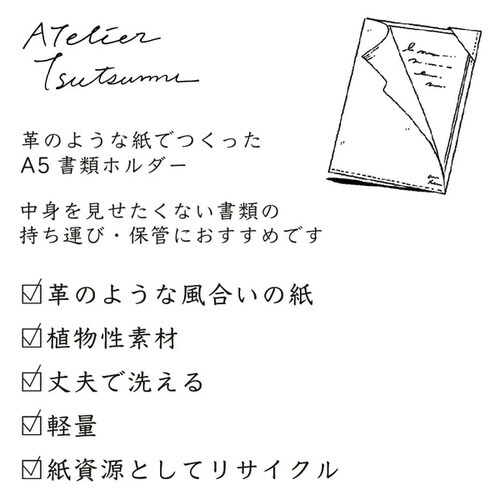 Atelier
Tsutsumu
革のような紙でつくった
A5書類ホルダー
中身を見せたくない書類の
持ち運び・保管におすすめです
☑革のような風合いの紙
☑植物性素材
☑丈夫で洗える
☑軽量
☑紙資源としてリサイクル